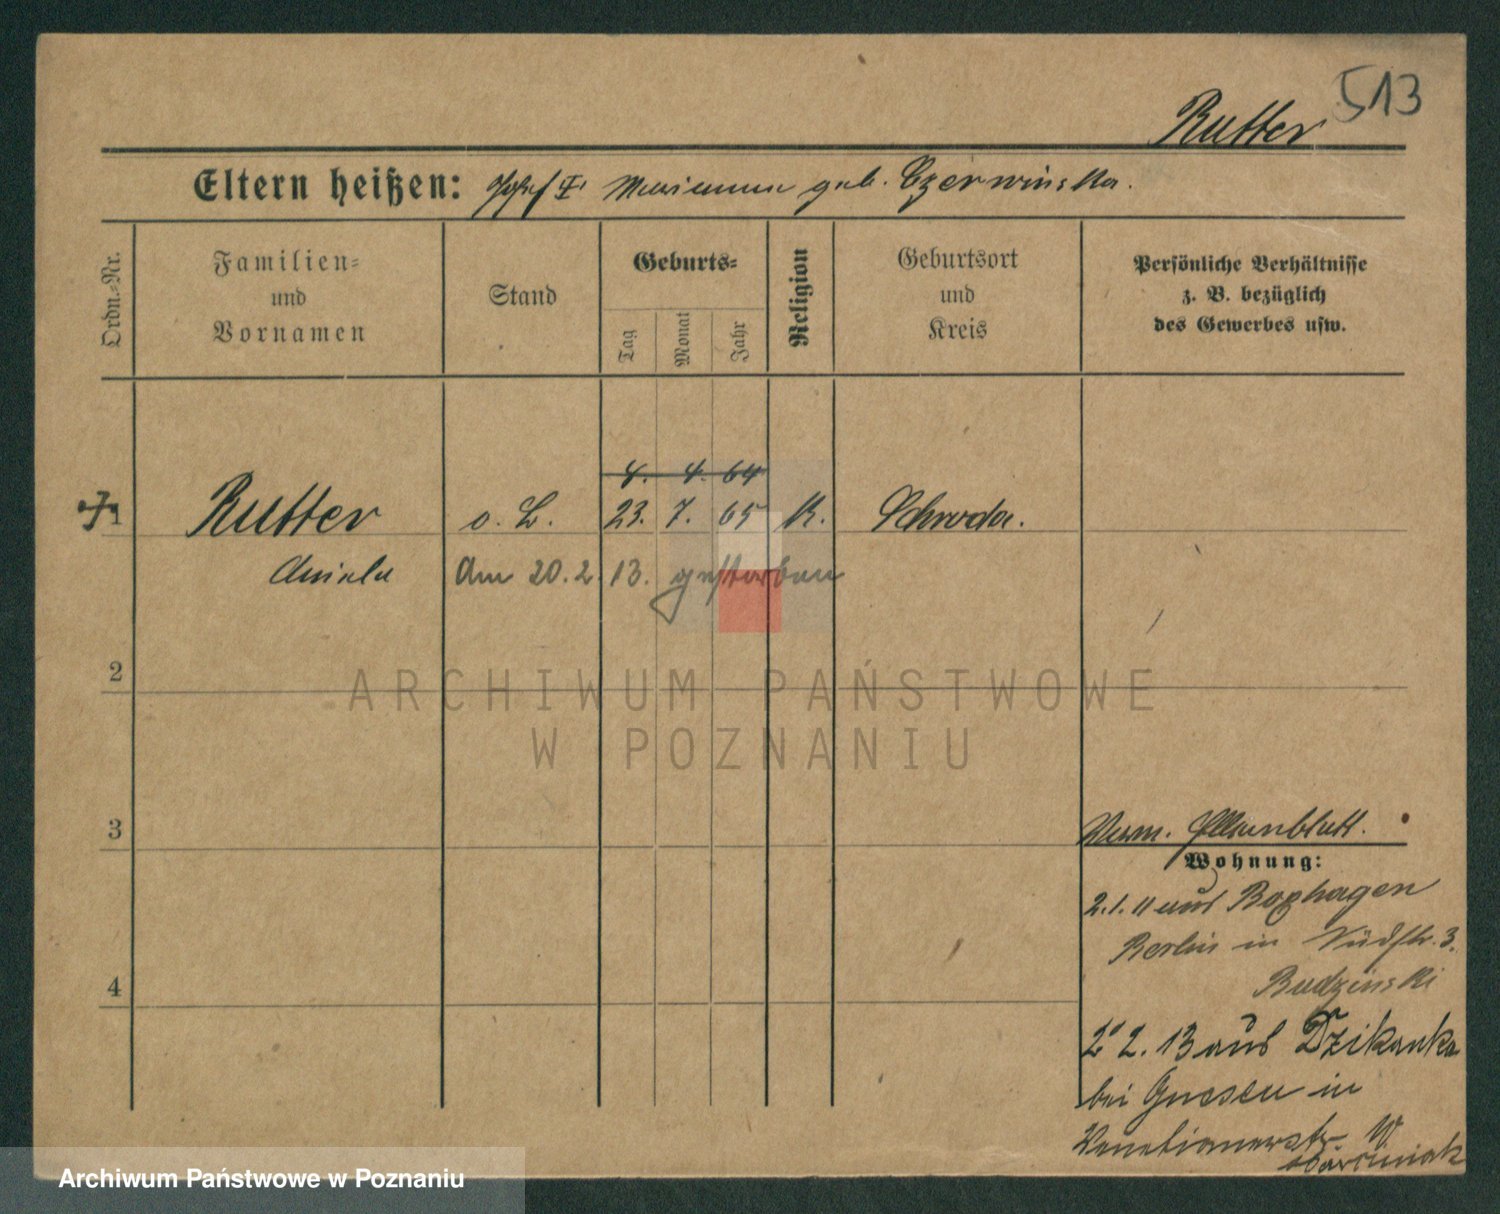 513
Rutter
Eltern heißen: Josef I. Marianna geb. Czerwinska.
Ordn.-Nr.
Familien-
und
Vornamen
Stand
Geburts-
Tag
Monat
Jahr
Religion
Geburtsort
und
Kreis
Persönliche Verhältnisse
z. B. bezüglich
des Gewerbes usw.
4. 4. 64
1 Rutter o. L. 23. 7. 65 K. Schroda.
Aniela Am 20. 2. 13. gestorben
2
ARCHIWUM PAŃSTWOWE
W POZNANIU
3
Wohnung:
2. 1. 11 aus Boxhagen
Berlin in Südstr. 3.
Budzinski
2. 13 aus Dzikanka
4
bei Gnesen in
Venetianerstr.
Marciniak
Archiwum Państwowe w Poznaniu